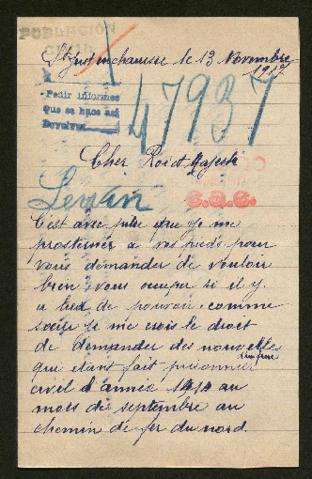 POBLACION
CIVIL
St Just en chaussée le 13 Novembre
1917
Pedir informes
Que se hace así
47937
Cher Roi et Majesté
C'est avec joie que je me
prosterner a vos pieds pour
vous demander de vouloir
bien vous occuper si il y
a lieu de pouvoir, comme
je me crois le droit
de demander des nouvelles
qui etant fait prisonnier
civil d'année 1914 au
mois de septembre au
chemin de fer du nord.